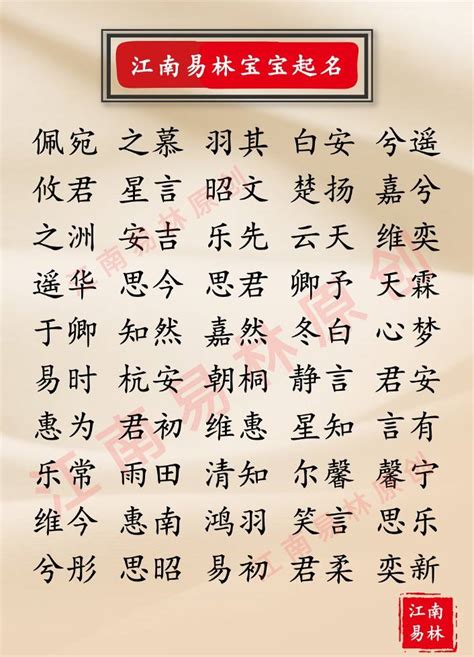 江南易林宝宝起名
佩宛 之慕 羽其 白安 兮遥
攸君 星言 昭文 楚扬 嘉兮
之洲 安吉 乐先 云天 维奕
遥华 思今 思君 卿予 天霖
于卿 知然 嘉然 冬白 心梦
易时 杭安 朝桐 静言 君安
惠为 君初 维惠 星知 言有
乐常 雨田 清知 尔馨 馨宁
维今 惠南 鸿羽 笑言 思乐
兮彤 思昭 易初 君柔 奕新
江南易林原创
江南易林原创
江南易林原创
江南
易林